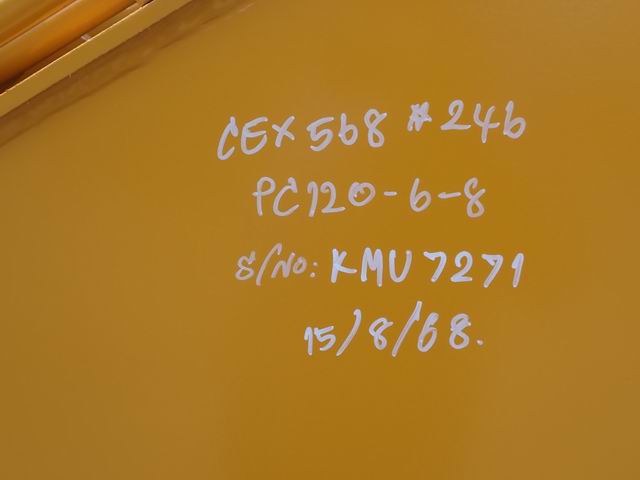 CEX 568 #246
PC120-6-8
S/NO: KMU 7271
15/8/68.